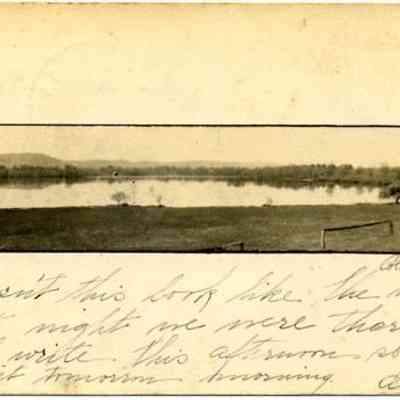 Col
isn't this look like the
night we were ther
write this afternoon so
it tomorrow morning.